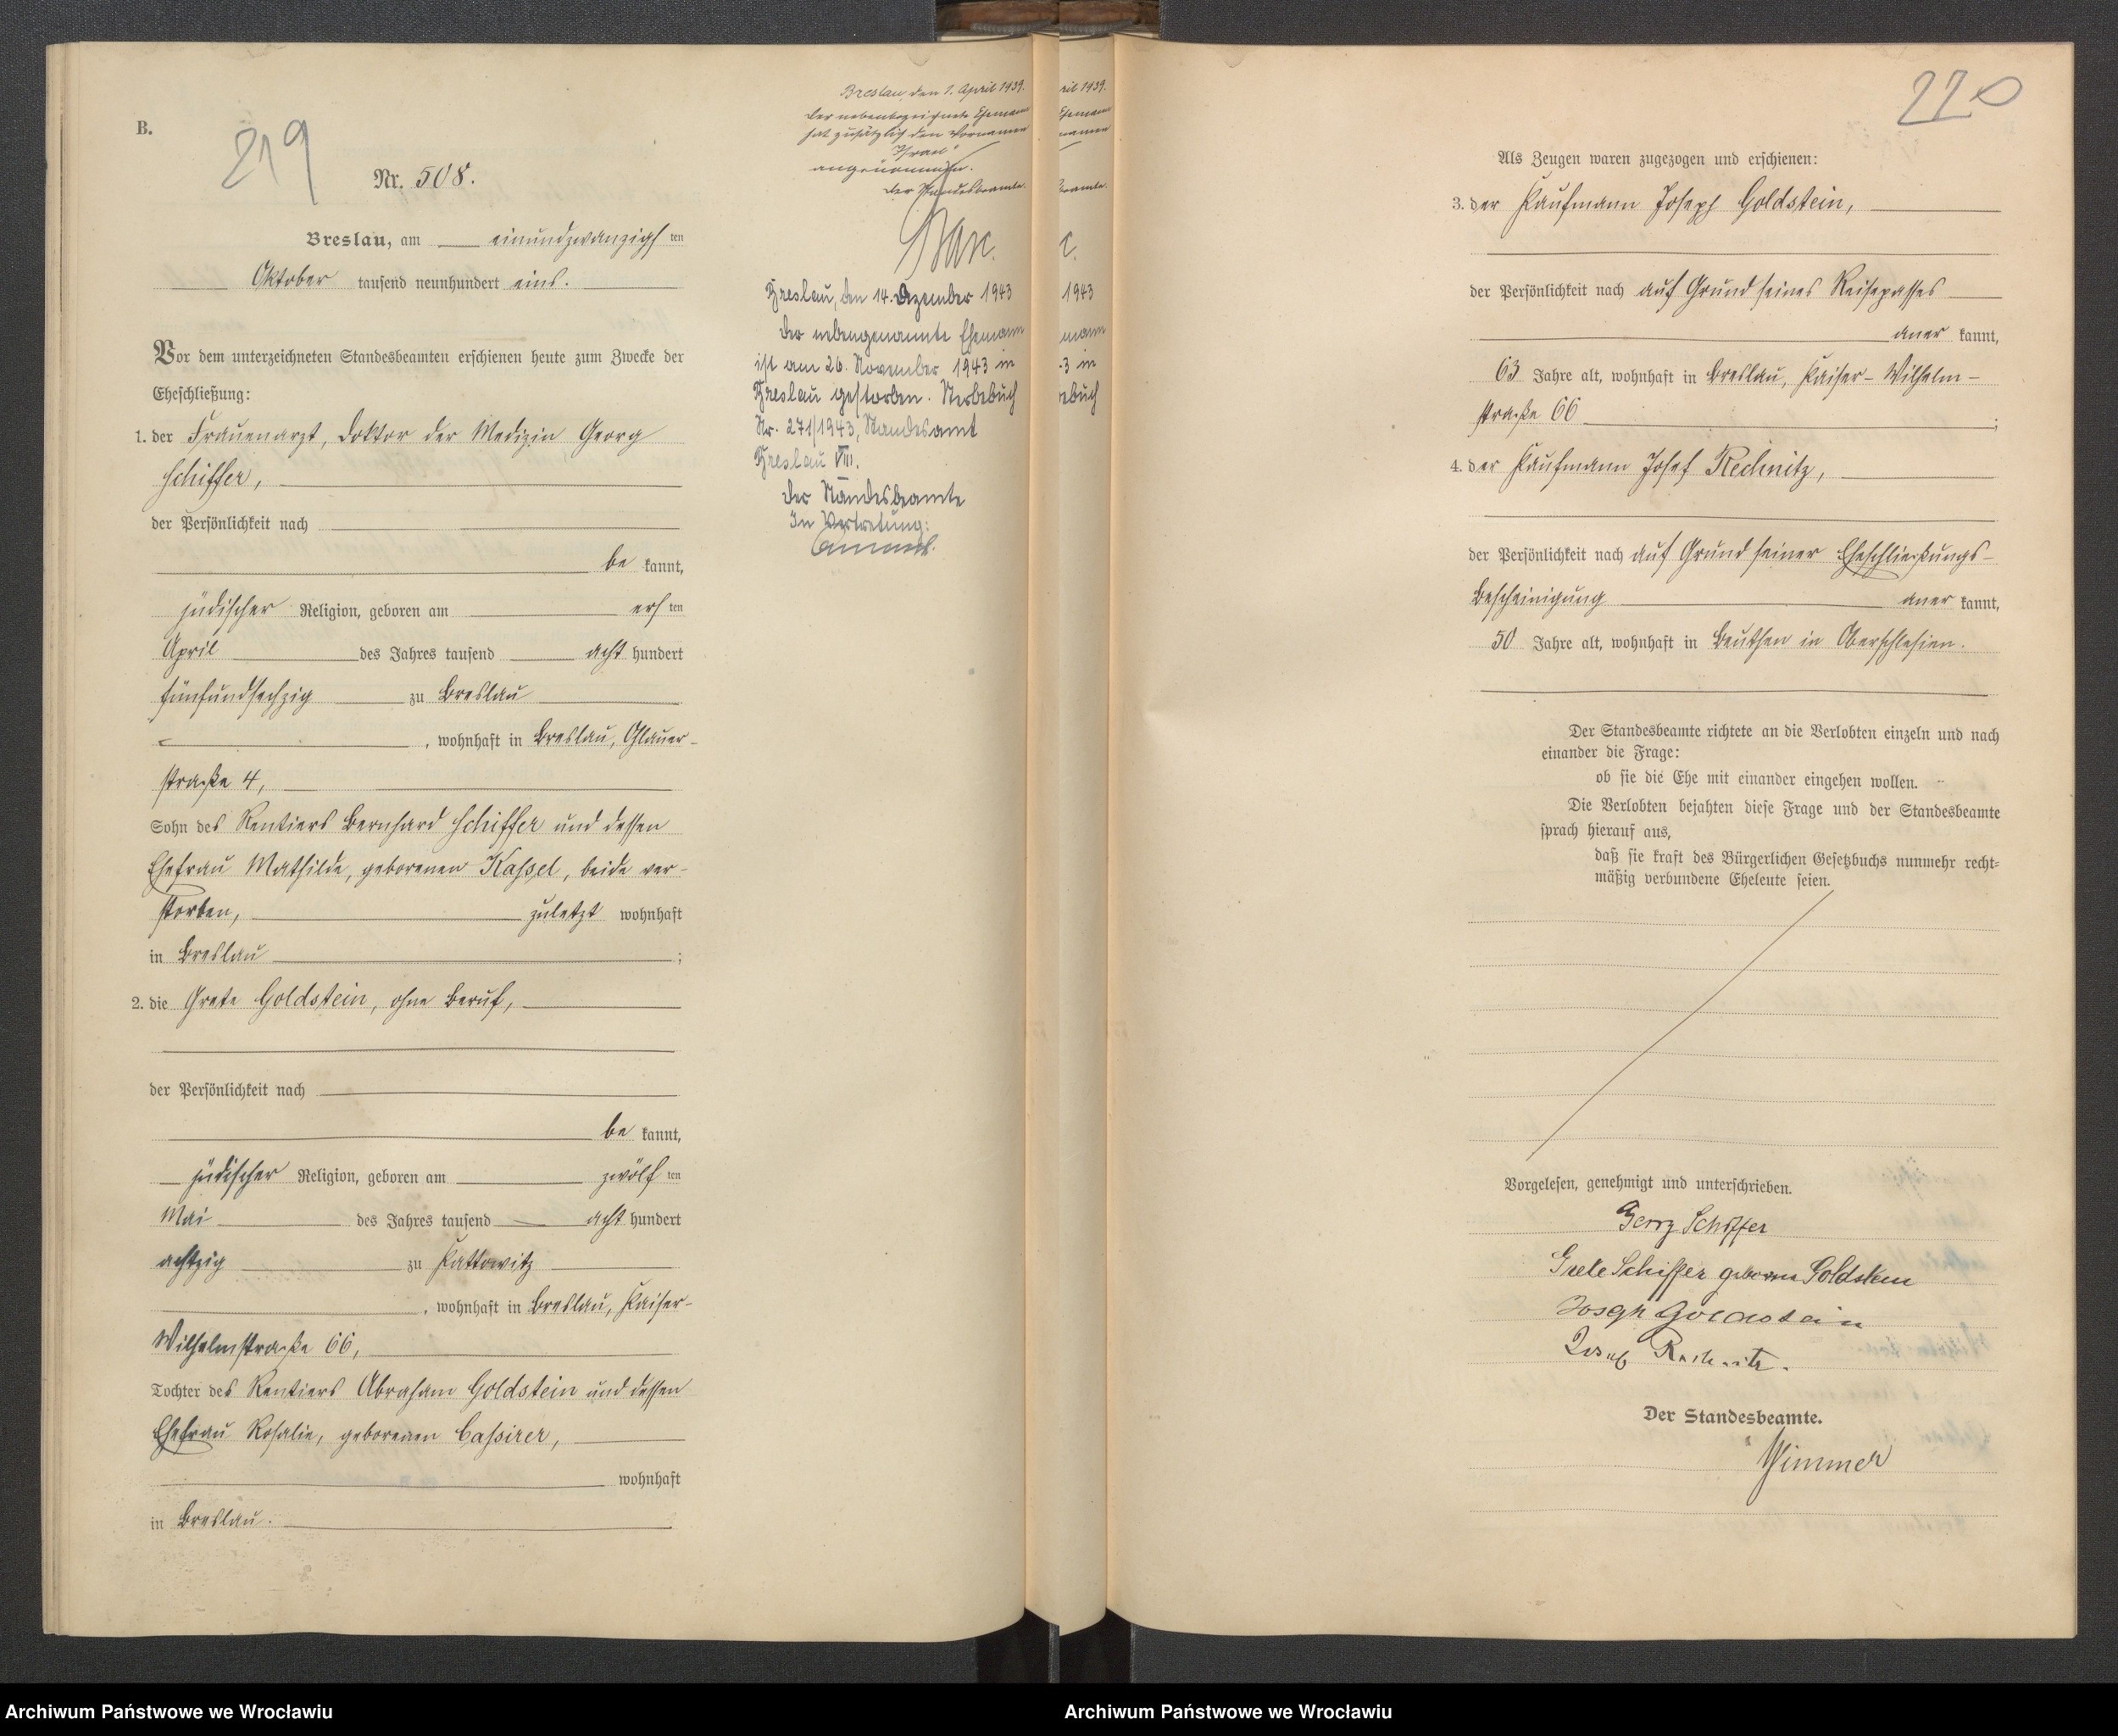 B.
219
Nr. 508.
Breslau, am einundzwanzigsten
Oktober tausend neunhundert eins.
Vor dem unterzeichneten Standesbeamten erschienen heute zum Zwecke der
Eheschließung:
1. der Frauenarzt, Doktor der Medizin Georg
Schiffer,
der Persönlichkeit nach
bekannt,
jüdischer Religion, geboren am ersten
April des Jahres tausend acht hundert
fünfundsechzig zu Breslau
, wohnhaft in Breslau, Ohlauer-
straße 4,
Sohn des Rentiers Bernhard Schiffer und dessen
Ehefrau Mathilde, geborenen Kassel, beide ver-
storben, zuletzt wohnhaft
in Breslau ;
2. die Grete Goldstein, ohne Beruf,
der Persönlichkeit nach
bekannt,
jüdischer Religion, geboren am zwölften
Mai des Jahres tausend acht hundert
achtzig zu Kattowitz
, wohnhaft in Breslau, Kaiser-
Wilhelmstraße 66,
Tochter des Rentiers Abraham Goldstein und dessen
Ehefrau Rosalie, geborenen Cassirer,
wohnhaft
in Breslau.
Breslau, den 1. April 1939.
Der nebenbezeichnete Ehemann
hat zusätzlich den Vornamen
"Israel"
angenommen.
Der Standesbeamte.
Breslau, den 14. Dezember 1943
Der nebengenannte Ehemann
ist am 26. November 1943 in
Breslau gestorben. Sterbebuch
Nr. 271/1943, Standesamt
Breslau VIII.
Der Standesbeamte
In Vertretung:
ril 1939.
Ehemann
namen
beamte.
1943
mann
-3 in
ebuch
220
Als Zeugen waren zugezogen und erschienen:
3. der Kaufmann Joseph Goldstein,
der Persönlichkeit nach auf Grund seines Reisepasses
anerkannt,
63 Jahre alt, wohnhaft in Breslau, Kaiser-Wilhelm-
straße 66 ;
4. der Kaufmann Josef Rechnitz,
der Persönlichkeit nach auf Grund seiner Eheschließungs-
Bescheinigung anerkannt,
50 Jahre alt, wohnhaft in Beuthen in Oberschlesien.
Der Standesbeamte richtete an die Verlobten einzeln und nach
einander die Frage:
ob sie die Ehe mit einander eingehen wollen.
Die Verlobten bejahten diese Frage und der Standesbeamte
sprach hierauf aus,
daß sie kraft des Bürgerlichen Gesetzbuchs nunmehr recht-
mäßig verbundene Eheleute seien.
Vorgelesen, genehmigt und unterschrieben.
Georg Schiffer
Grete Schiffer geborene Goldstein
Joseph Goldstein
Josef Rechnitz.
Der Standesbeamte.
Wimmer
Archiwum Państwowe we Wrocławiu
Archiwum Państwowe we Wrocławiu